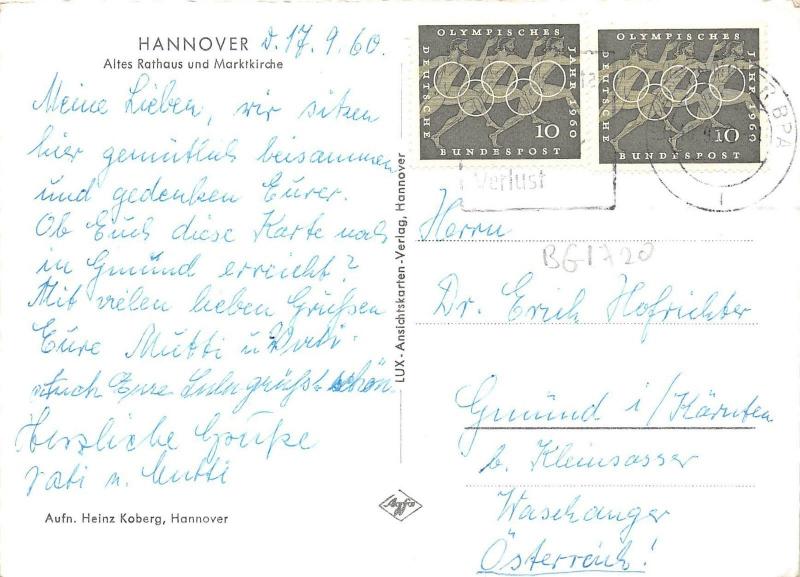 HANNOVER d. 17.9.60.
Altes Rathaus und Marktkirche
Meine Lieben, wir sitzen
hier gemütlich beisammen
und gedenken Eurer.
Ob Euch diese Karte noch
in Gmünd erreicht?
Mit vielen lieben Grüßen
Eure Mutti u. Vati.
Auch Eure Lulu grüßt schön
Herzliche Grüße
Vati u. Mutti
Aufn. Heinz Koberg, Hannover
LUX-Ansichtskarten-Verlag, Hannover
Agfa
OLYMPISCHES
JAHR 1960
DEUTSCHE
BUNDESPOST
10
OLYMPISCHES
JAHR 1960
DEUTSCHE
BUNDESPOST
10
Verlust
BPA
1
Herrn
BG1720
Dr. Erich Hofrichter
Gmünd i/Kärnten
b. Kleinsasser
Waschanger
Österreich!